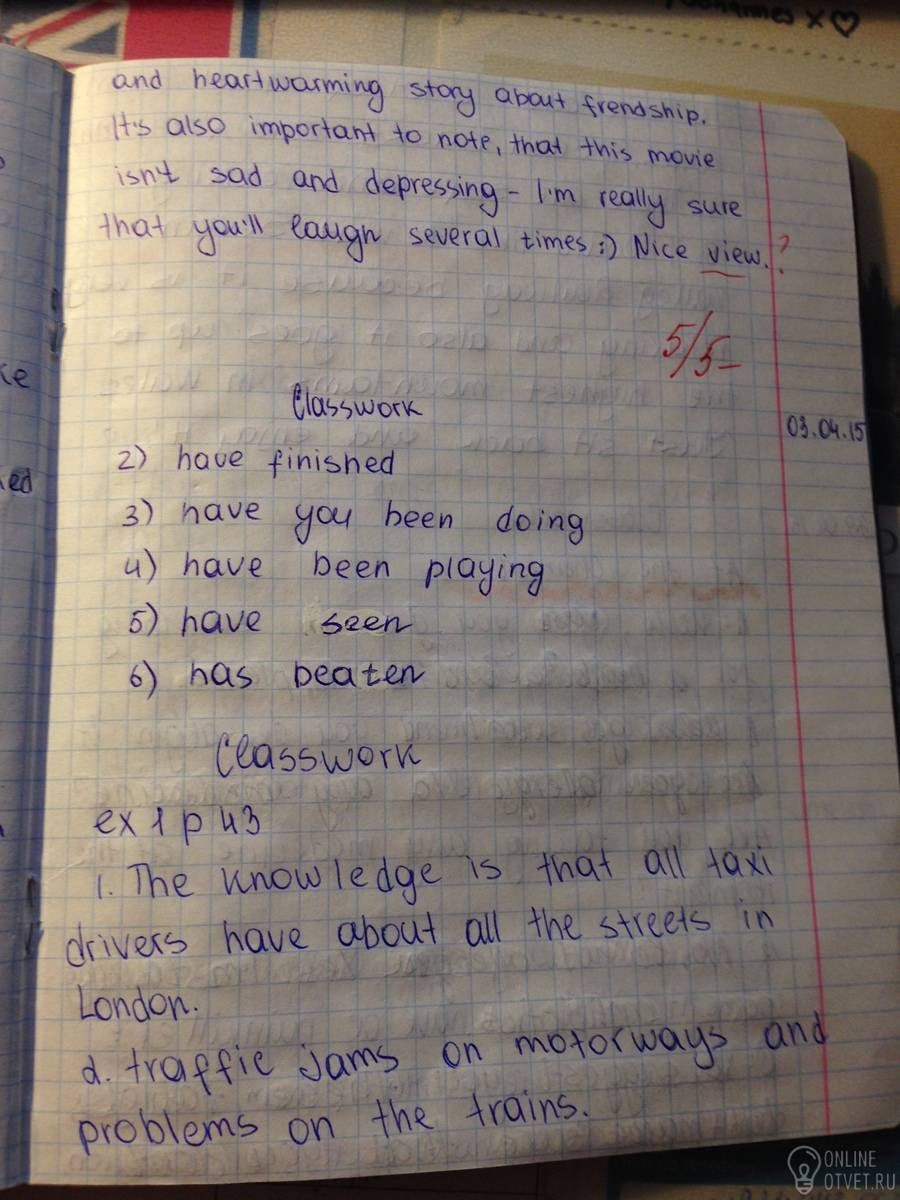 x ♡
and heartwarming story about frendship.
It's also important to note, that this movie
isn't sad and depressing - I'm really sure
that you'll laugh several times :) Nice view. ?
5/5-
Classwork
03.04.15
2) have finished
3) have you been doing
4) have been playing
5) have seen
6) has beaten
Classwork
ex 1 p 43
1. The knowledge is that all taxi
drivers have about all the streets in
London.
2. traffic jams on motorways and
problems on the trains.
ONLINE
OTVET.RU